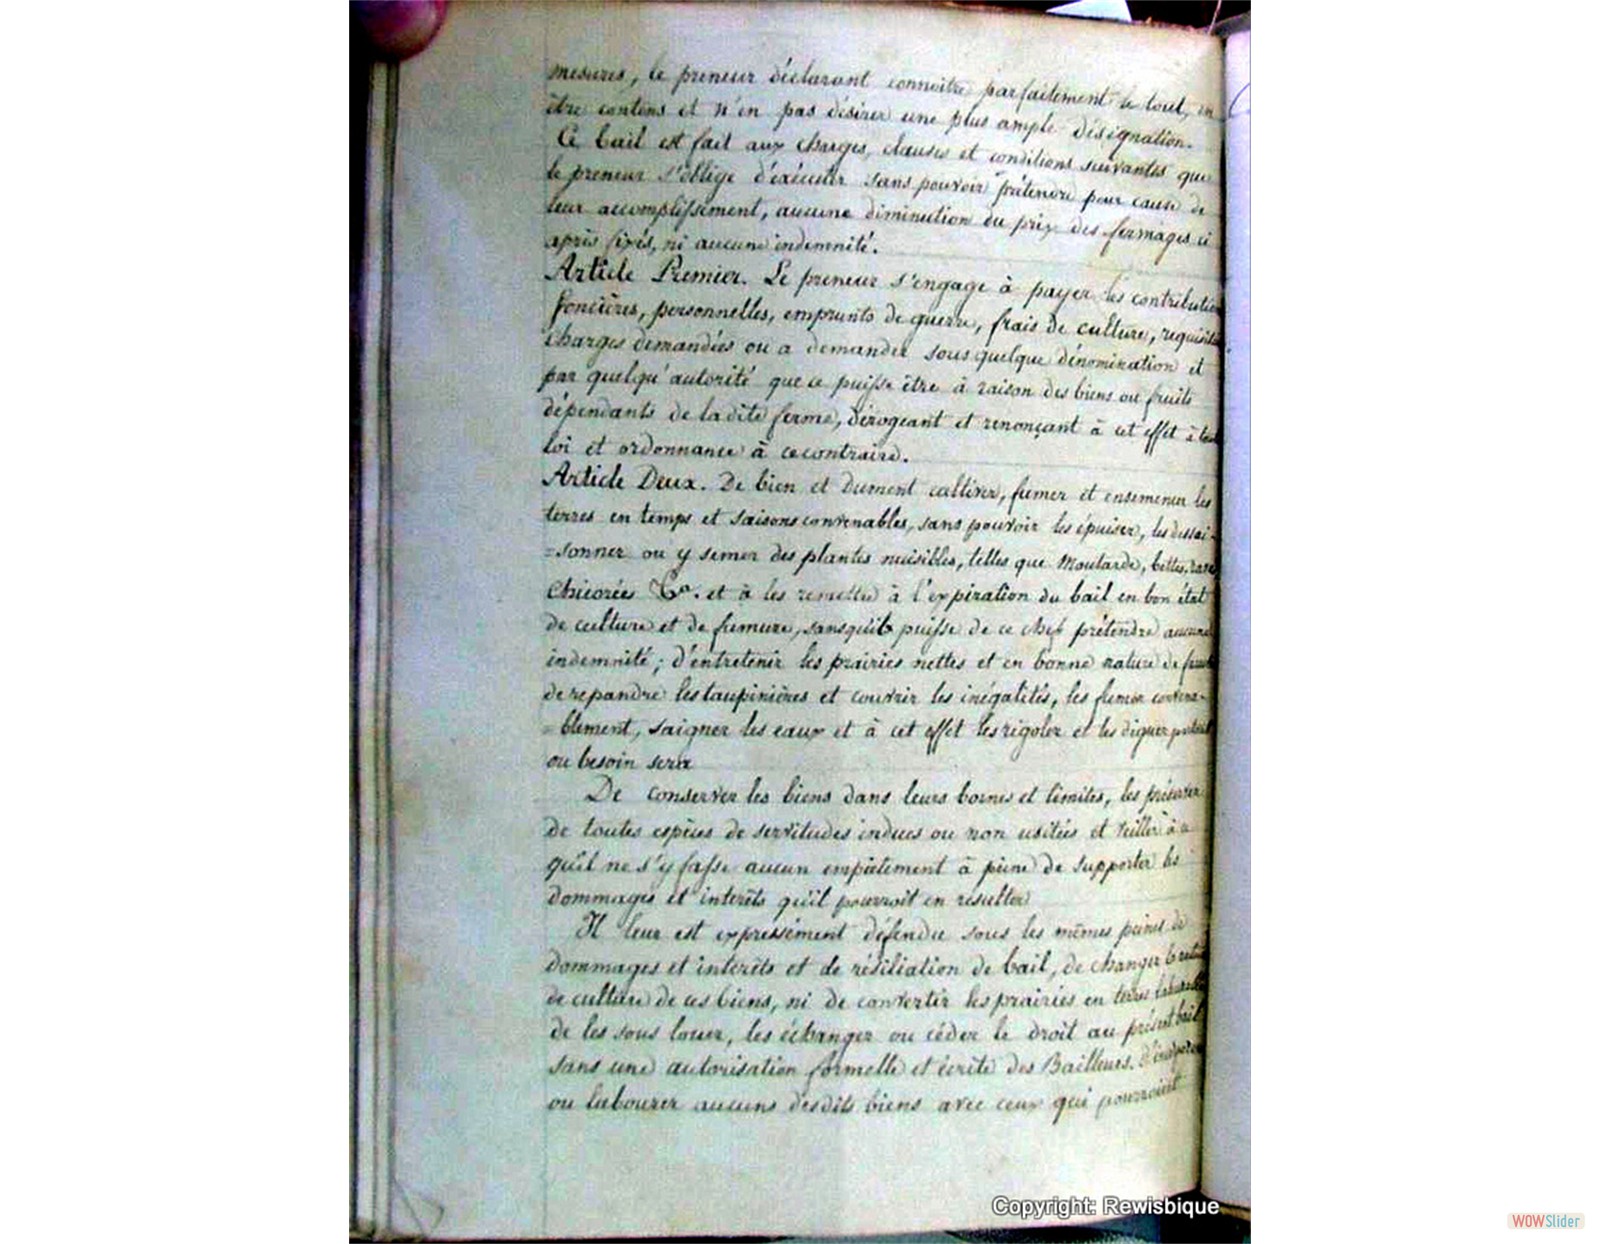 mesures, le preneur déclarant connoitre parfaitement le tout, en
être contens et n'en pas désirer une plus ample désignation.
Ce bail est fait aux charges, clauses et conditions suivantes que
le preneur s'oblige d'exécuter sans pouvoir prétendre pour cause de
leur accomplissement, aucune diminution du prix des fermages ci
après fixés, ni aucune indemnité.
Article Premier. Le preneur s'engage à payer les contribution
foncières, personnelles, emprunts de guerre, frais de culture, requisiti
charges demandées ou a demander sous quelque dénomination et
par quelqu'autorité que ce puisse être à raison des biens ou fruits
dépendants de la dite ferme, dérogeant et renonçant à cet effet à tout
loi et ordonnance à ce contraire.
Article Deux. De bien et dument cultiver, fumer et ensemencer les
terres en temps et saisons convenables, sans pouvoir les épuiser, les dessai-
=sonner ou y semer des plantes nuisibles, telles que Moutarde, bettes raves
Chicorées &a. et à les remettre à l'expiration du bail en bon état
de culture et de fumure, sans qu'il puisse de ce chef prétendre aucune
indemnité ; d'entretenir les prairies nettes et en bonne nature de
de repandre les taupinières et couvrir les inégalités, les fumer convena-
=blement, saigner les eaux et à cet effet les rigoler et les diguer partout
ou besoin sera
De conserver les biens dans leurs bornes et limites, les préserver
de toutes espèces de servitudes indues ou non usitées et veiller à ce
qu'il ne s'y fasse aucun empietement à peine de supporter les
dommages et interêts qu'il pourroit en résulter
Il leur est expressément défendu sous les mêmes peines de
dommages et interêts et de résiliation de bail, de changer la nature
de culture de ces biens, ni de convertir les prairies en terres labourables
de les sous louer, les échanger ou céder le droit au présent bail
sans une autorisation formelle et écrite des Bailleurs. d'incorporer
ou labourer aucuns desdits biens avec ceux qui pourroient
Copyright: Rewisbique
WOWSlider